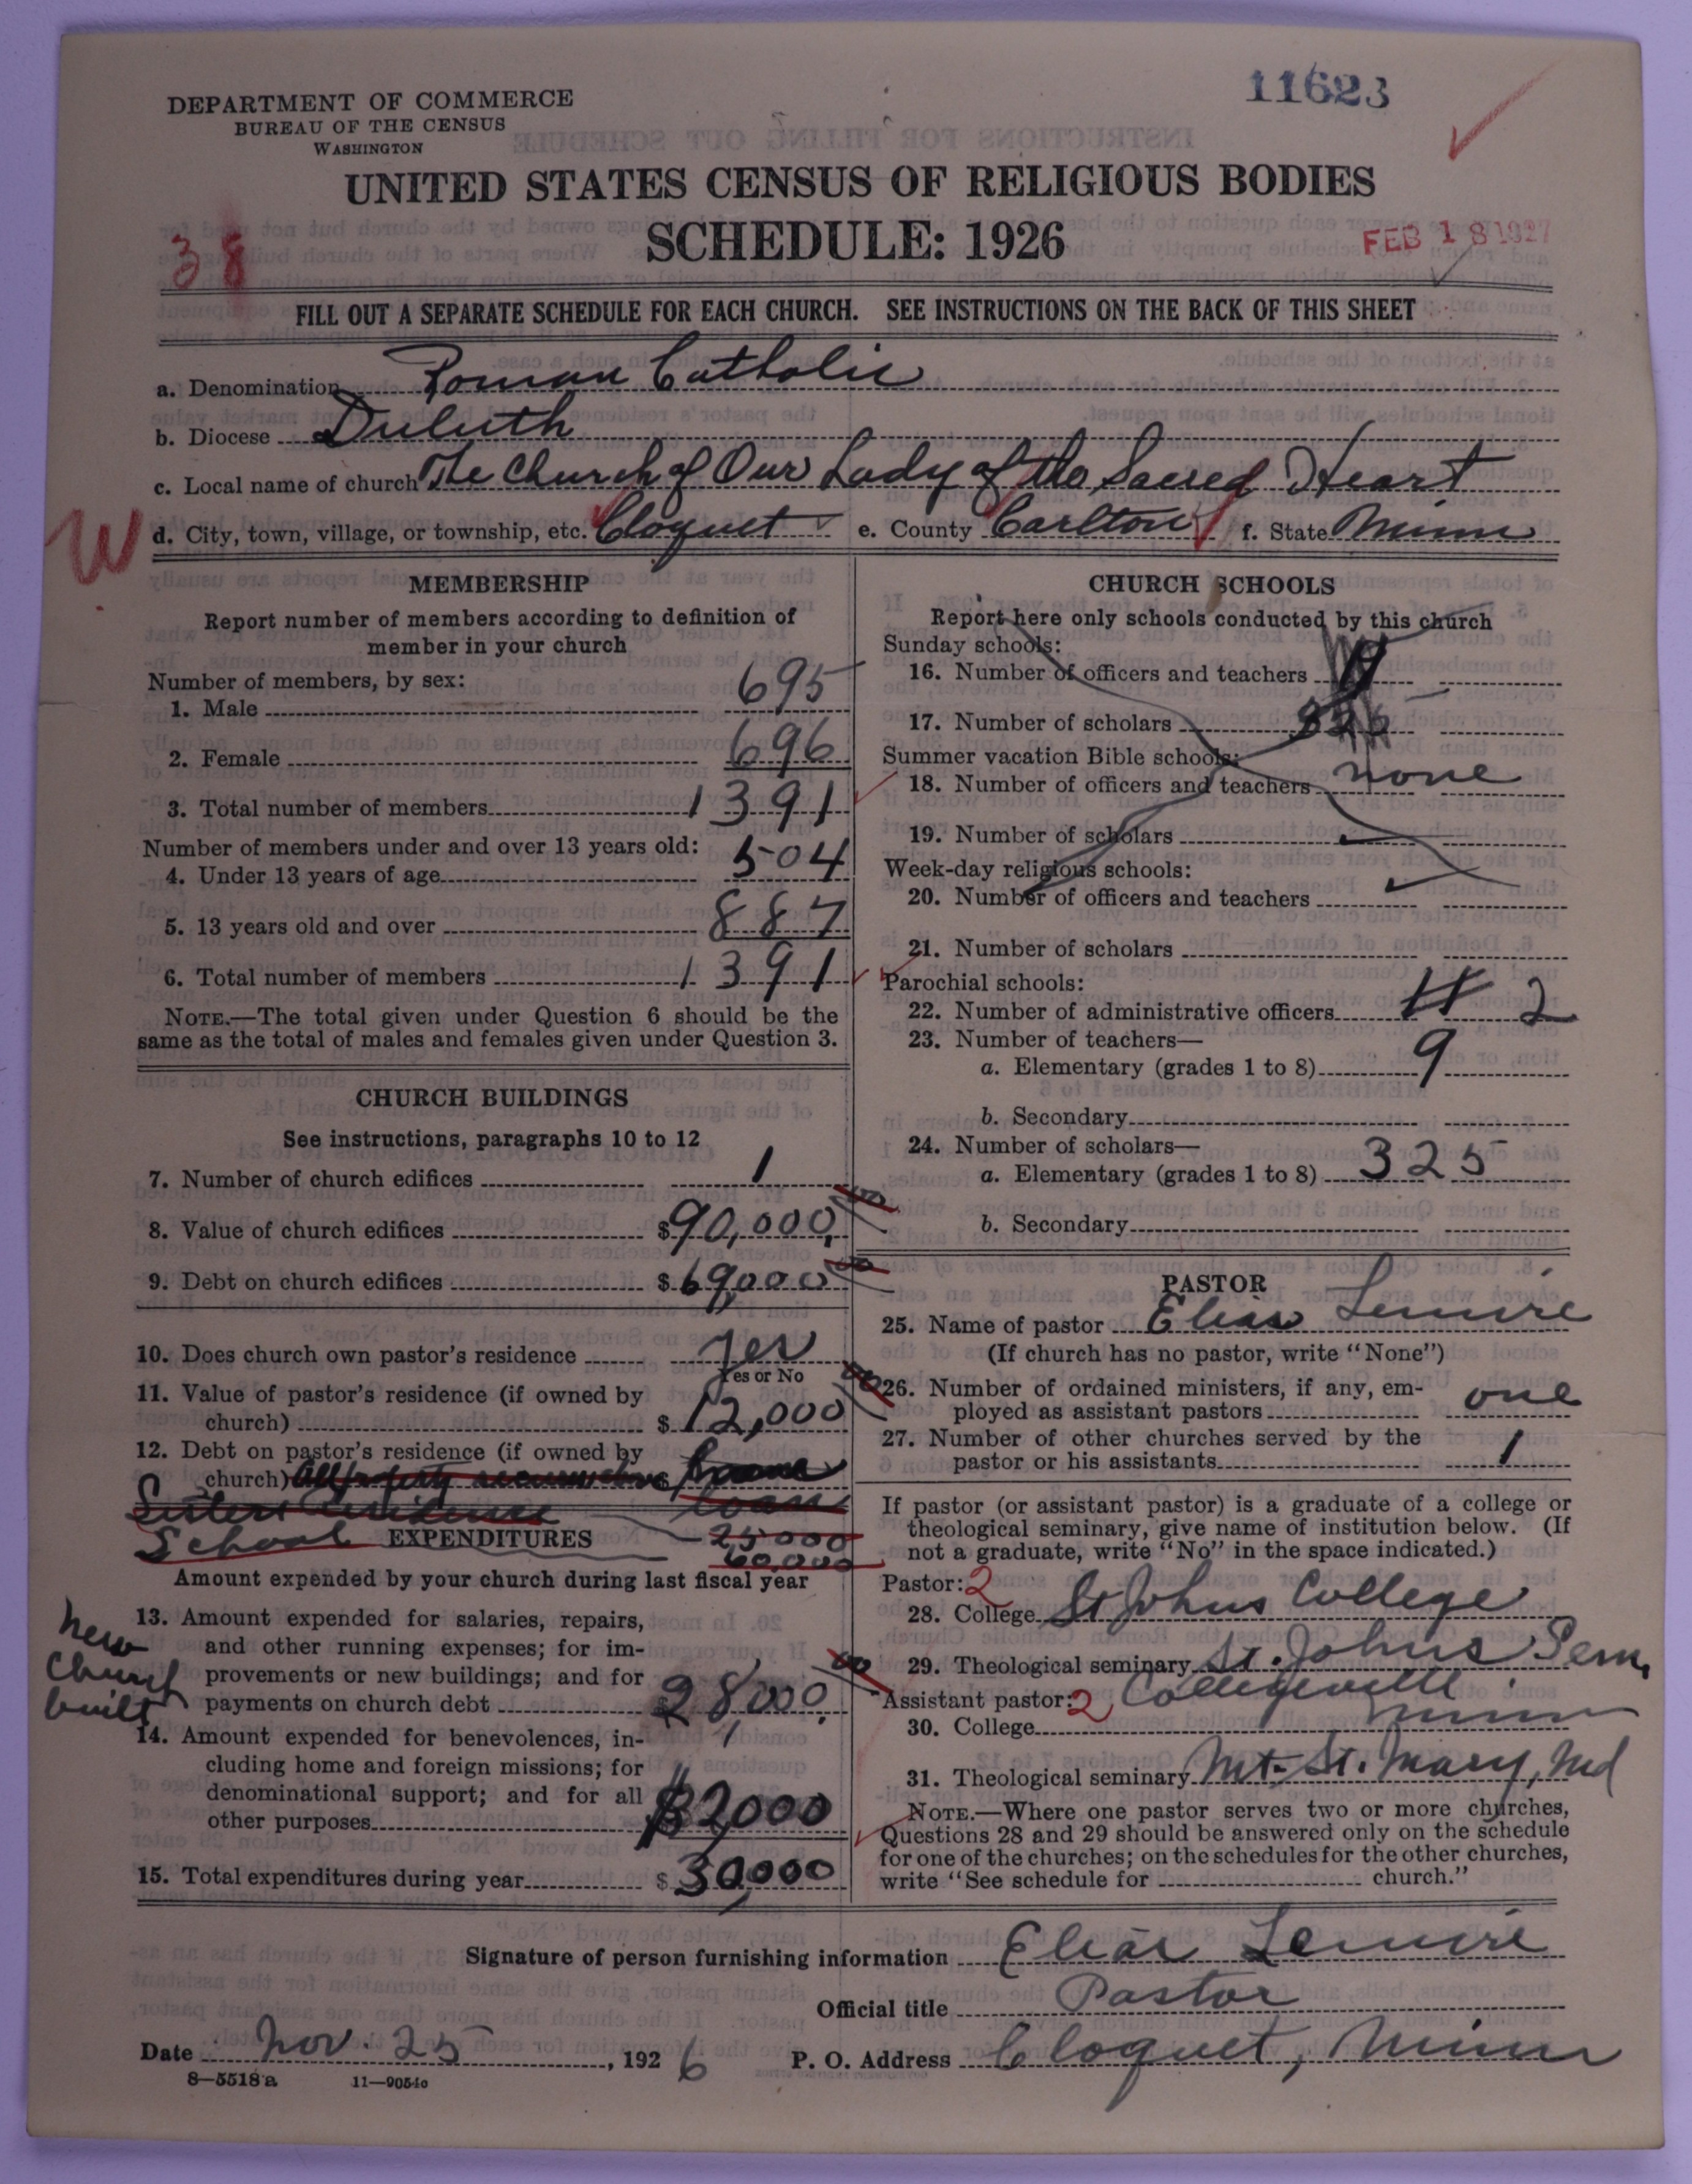 11623
DEPARTMENT OF COMMERCE
BUREAU OF THE CENSUS
WASHINGTON
UNITED STATES CENSUS OF RELIGIOUS BODIES
SCHEDULE: 1926
FEB 18 1927
38
FILL OUT A SEPARATE SCHEDULE FOR EACH CHURCH. SEE INSTRUCTIONS ON THE BACK OF THIS SHEET
a. Denomination Roman Catholic
b. Diocese Duluth
c. Local name of church The Church of Our Lady of the Sacred Heart
W d. City, town, village, or township, etc. Cloquet e. County Carlton f. State Minn
MEMBERSHIP
Report number of members according to definition of
member in your church
Number of members, by sex:
1. Male 695
2. Female 696
3. Total number of members 1391
Number of members under and over 13 years old:
4. Under 13 years of age 504
5. 13 years old and over 887
6. Total number of members 1391
NOTE.—The total given under Question 6 should be the
same as the total of males and females given under Question 3.
CHURCH BUILDINGS
See instructions, paragraphs 10 to 12
7. Number of church edifices 1
8. Value of church edifices $90,000
9. Debt on church edifices $69,000
10. Does church own pastor's residence Yes
Yes or No
11. Value of pastor's residence (if owned by
church) $12,000
12. Debt on pastor's residence (if owned by
church) $
Sisters residence
School 25000
60,000
EXPENDITURES
Amount expended by your church during last fiscal year
13. Amount expended for salaries, repairs,
and other running expenses; for im-
provements or new buildings; and for
payments on church debt 28,000
new
church
built
14. Amount expended for benevolences, in-
cluding home and foreign missions; for
denominational support; and for all
other purposes $2,000
15. Total expenditures during year $30,000
CHURCH SCHOOLS
Report here only schools conducted by this church
Sunday schools:
16. Number of officers and teachers
17. Number of scholars
Summer vacation Bible schools:
18. Number of officers and teachers none
19. Number of scholars
Week-day religious schools:
20. Number of officers and teachers
21. Number of scholars
Parochial schools:
22. Number of administrative officers 2
23. Number of teachers—
a. Elementary (grades 1 to 8) 9
b. Secondary
24. Number of scholars—
a. Elementary (grades 1 to 8) 325
b. Secondary
PASTOR
25. Name of pastor Elias Lemire
(If church has no pastor, write "None")
26. Number of ordained ministers, if any, em-
ployed as assistant pastors one
27. Number of other churches served by the
pastor or his assistants 1
If pastor (or assistant pastor) is a graduate of a college or
theological seminary, give name of institution below. (If
not a graduate, write "No" in the space indicated.)
Pastor: 2
28. College St Johns College
29. Theological seminary St. Johns Sem.
Assistant pastor: 2 Collegeville
Minn
30. College
31. Theological seminary Mt. St. Mary, Md
NOTE.—Where one pastor serves two or more churches,
Questions 28 and 29 should be answered only on the schedule
for one of the churches; on the schedules for the other churches,
write "See schedule for church."
Signature of person furnishing information Elias Lemire
Official title Pastor
Date Nov. 25, 1926 P. O. Address Cloquet, Minn
8—5518 a 11—9054a